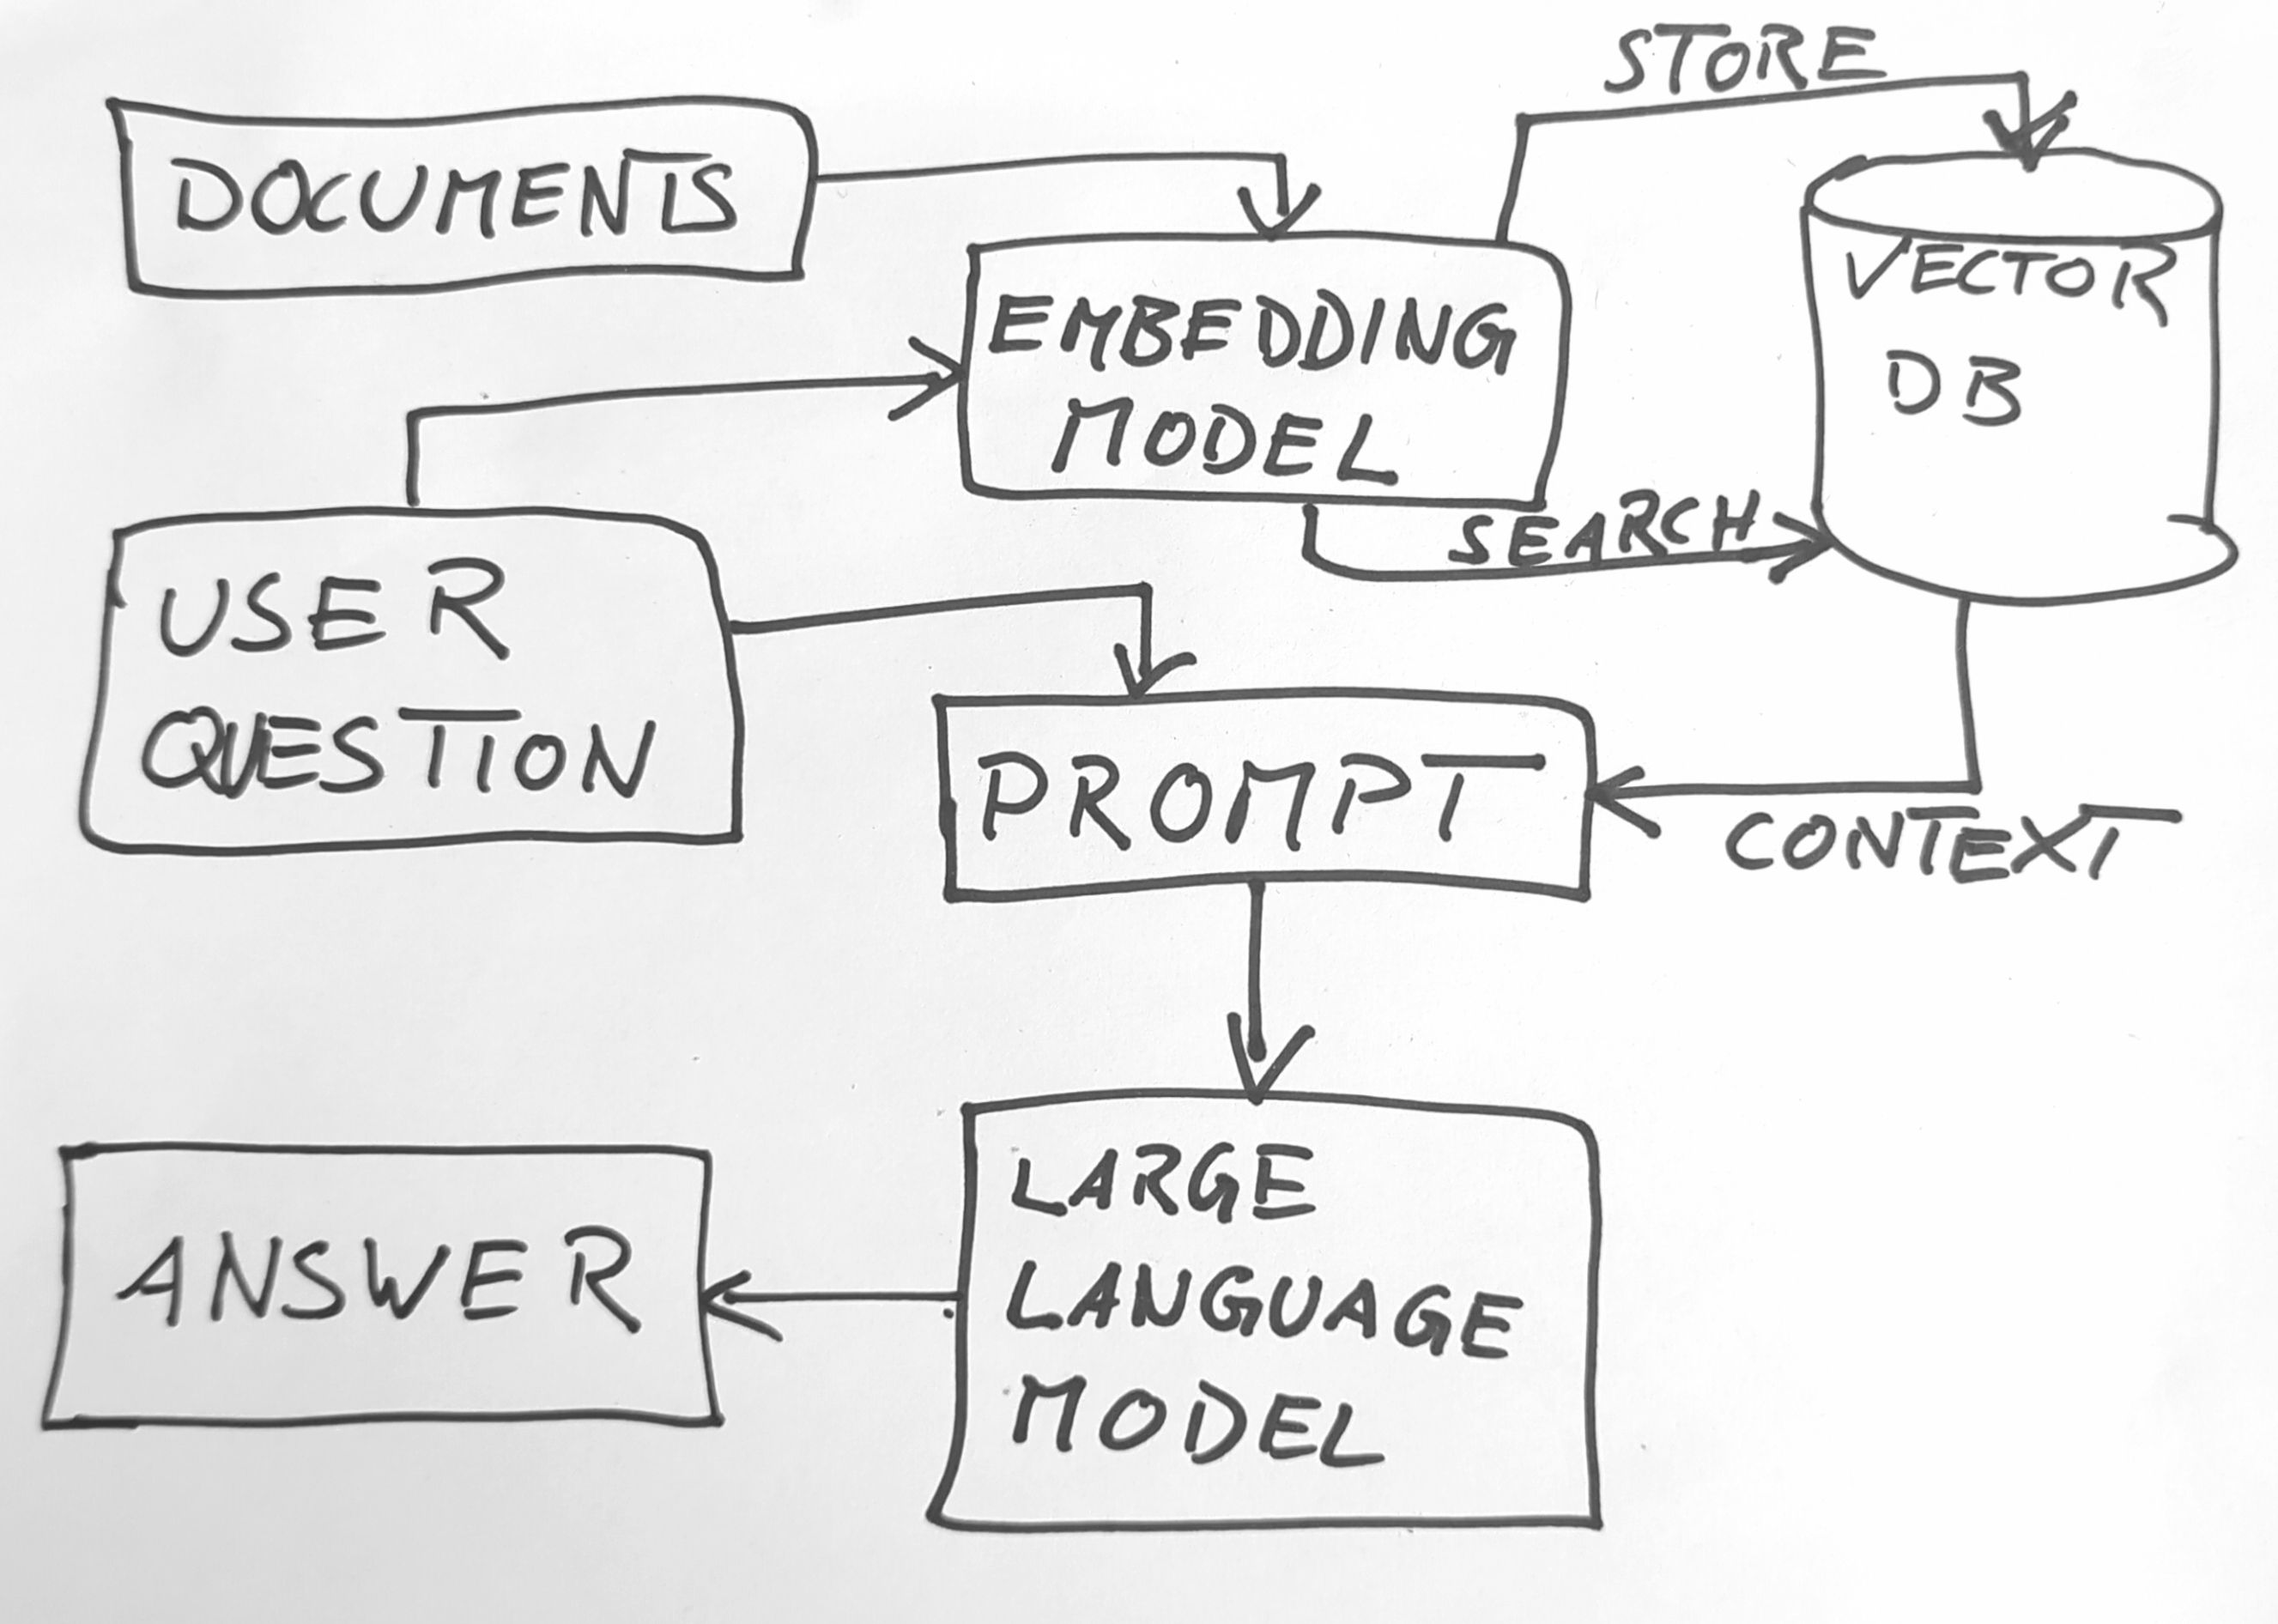 STORE
DOCUMENTS
VECTOR
DB
EMBEDDING
MODEL
SEARCH
USER
QUESTION
PROMPT
CONTEXT
LARGE
LANGUAGE
MODEL
ANSWER